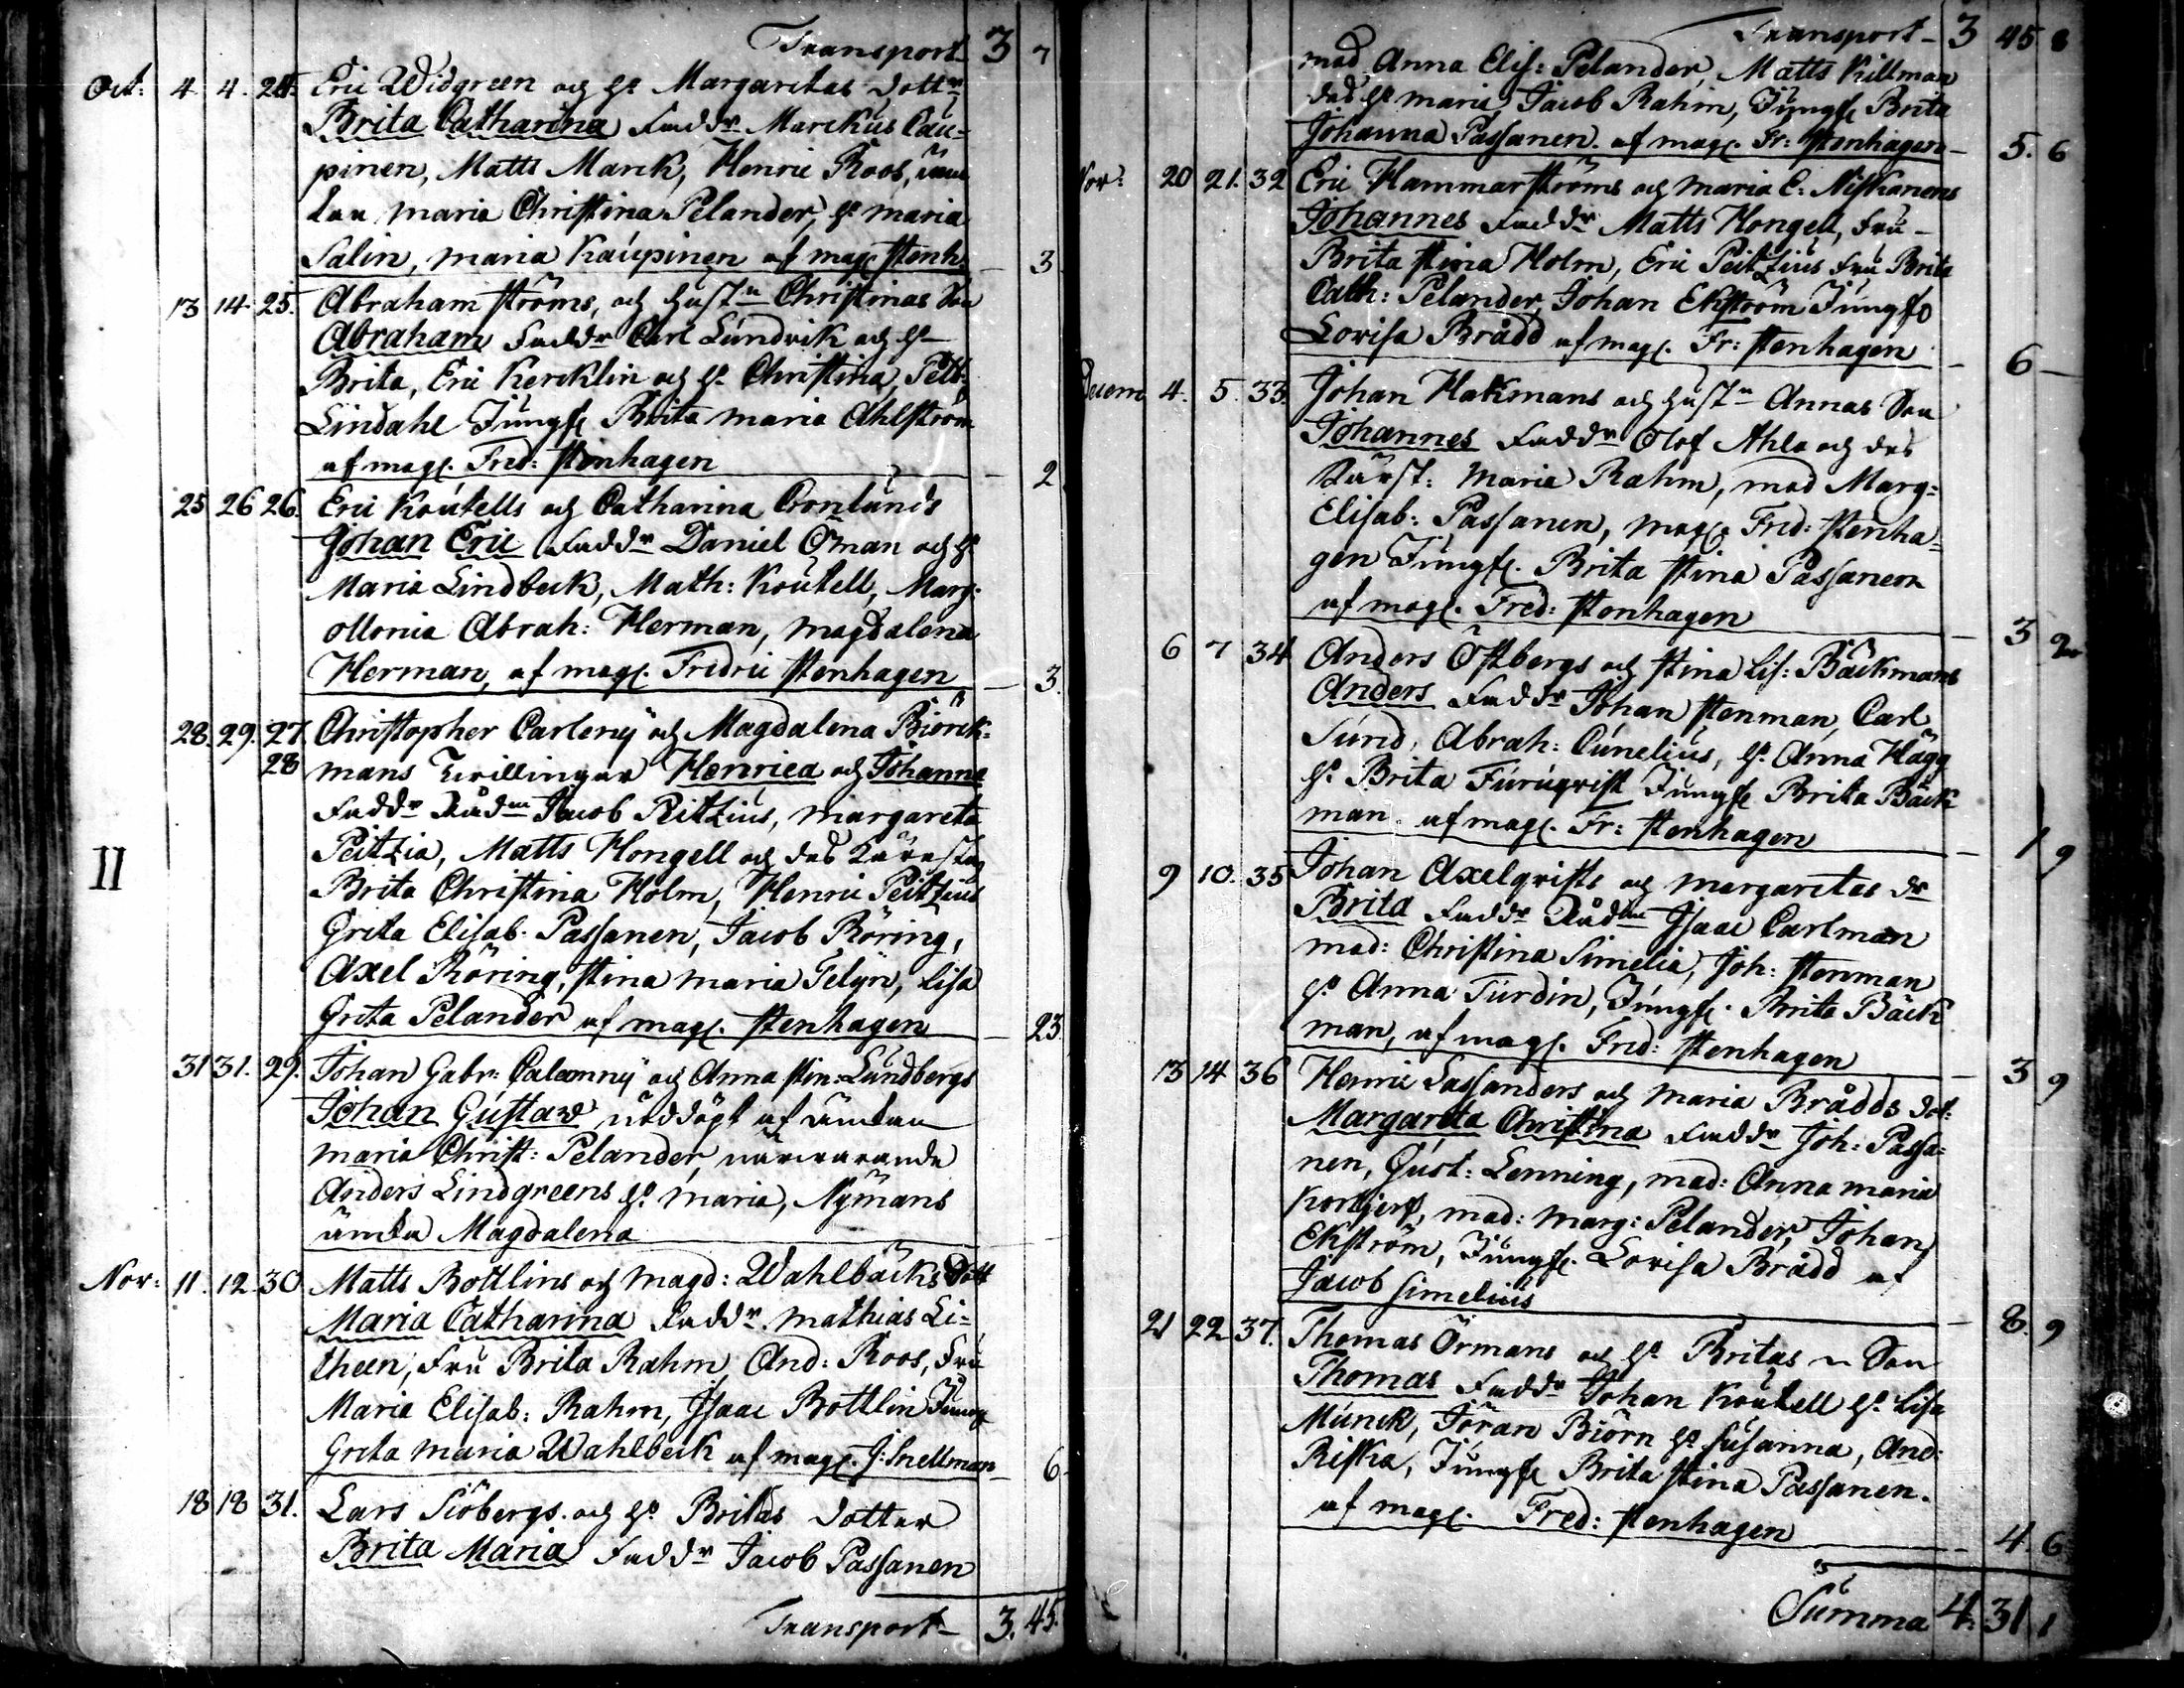 Transport 3 7
Oct: 4. 4. 24. Eric Widgreen och h. Margaretas Dottr
Brita Catharina Faddr Marckus Cau-
pinen, Matts Marck, Henric Roos, änc
kan Maria Christina Pelander, h. Maria
Salin, Maria Kaupinen af mag. Stenh. 3
13 14. 25. Abraham Ströms, och Hustn Christinas Son
Abraham Faddr Carl Lundvik och h
Brita, Eric Kercklin och h. Christina, Pett:
Lindahl Jungf. Brita Maria Ahlström
af mag. Fred: Stenhagen 2
25 26 26. Eric Koutells och Catharina Cronlunds
Johan Eric Faddr Daniel Öman och h.
Maria Lindbeck, Math: Koutell, Marg:
Monia Abrah: Herman, Magdalena
Herman, af mag. Fredric Stenhagen 3.
28. 29. 27. Christopher Carleny och Magdalena Biörck-
28 mans Tvillingar Henrica och Johanna
Faddr Rådm Jacob Peitzius, Margareta
Peitzia, Matts Hongell och des Käresta
Brita Christina Holm, Henric Peitzius
Grita Elisab. Passanen, Jacob Röring,
Axel Röring, Stina Maria Telijn, Lisa
Grita Pelander af mag. Stenhagen 23
II
31 31. 29. Johan Gabr: Calamny och Anna Stin: Lundbergs
Johan Gustaw nöddöpt af änckan
Maria Christ: Pelander, närwarande
Anders Lindgreens h. Maria, Nymans
äncka Magdalena
Nov: 11. 12. 30 Matts Bottlins och Magd: Wahlbäcks Dott
Maria Catharina Faddr. Mathias Li-
theen, Fru Brita Rahm, And: Roos, Fru
Maria Elisab: Rahm, Isaac Bottlin Jungf
Greta Maria Wahlbeck af mag. J: Snellman 6.
18 18 31. Lars Siöbergs. och h. Britas Dotter
Brita Maria Faddr Jacob Passanen
Transport 3. 45.
Transport 3 45 8
mad. Anna Elis: Pelander, Matts Killman
des h. Maria, Jacob Rahm, Jungf. Brita
Johanna Passanen. af mag. Fr: Stenhagen 5. 6
Nov: 20 21. 32 Eric Hammarströms och Maria E: Niskanens
Johannes Faddr Matts Hongell, Fru
Brita Stina Holm, Eric Peitzius Fru Brita
Cath: Pelander, Johan Ekström Jungf
Lovisa Brådd af mag. Fr: Stenhagen 6
Decem 4. 5. 33. Johan Hakmans och Hustn Annas Son
Johannes Faddr Olof Ahla och des
Kärest: Maria Rahm, mad Marg:
Elisab: Passanen, mag. Fred: Stenha-
gen Jungf. Brita Stina Passanen
af mag. Fred: Stenhagen 3 2
6 7 34 Anders Östbergs och Stina Lis: Bäckmans
Anders Faddr Johan Stenman, Carl
Sund, Abrah: Cunelius, h. Anna Hägg
h. Brita Furuqvist Jungf. Brita Bäck
man. af mag. Fr: Stenhagen 1 9
9 10. 35 Johan Axelqvists och Margaretas dr
Brita Faddr Rådm Isaac Carlman
mad: Christina Simelia, Joh: Stenman
h. Anna Turdin, Jungf. Brita Bäck
man, af mag. Fred: Stenhagen 3 9
13 14 36 Henric Lassanders och Maria Brådds Dot:
Margareta Christina Faddr Joh: Passa-
nen, Gust: Lenning, mad: Anna Maria
mad: Marg: Pelander, Johan
Ekström, Jungf. Lovisa Brådd af
Jacob Simelius 8. 9
21 22 37. Thomas Örmans och h. Britas Son
Thomas Faddr Johan Koutell h. Lisa
Munck, Jöran Biörn h. Susanna, And:
Riska, Jungf. Brita Stina Passanen.
af mag. Fred: Stenhagen 4. 6
Summa 4. 31 1